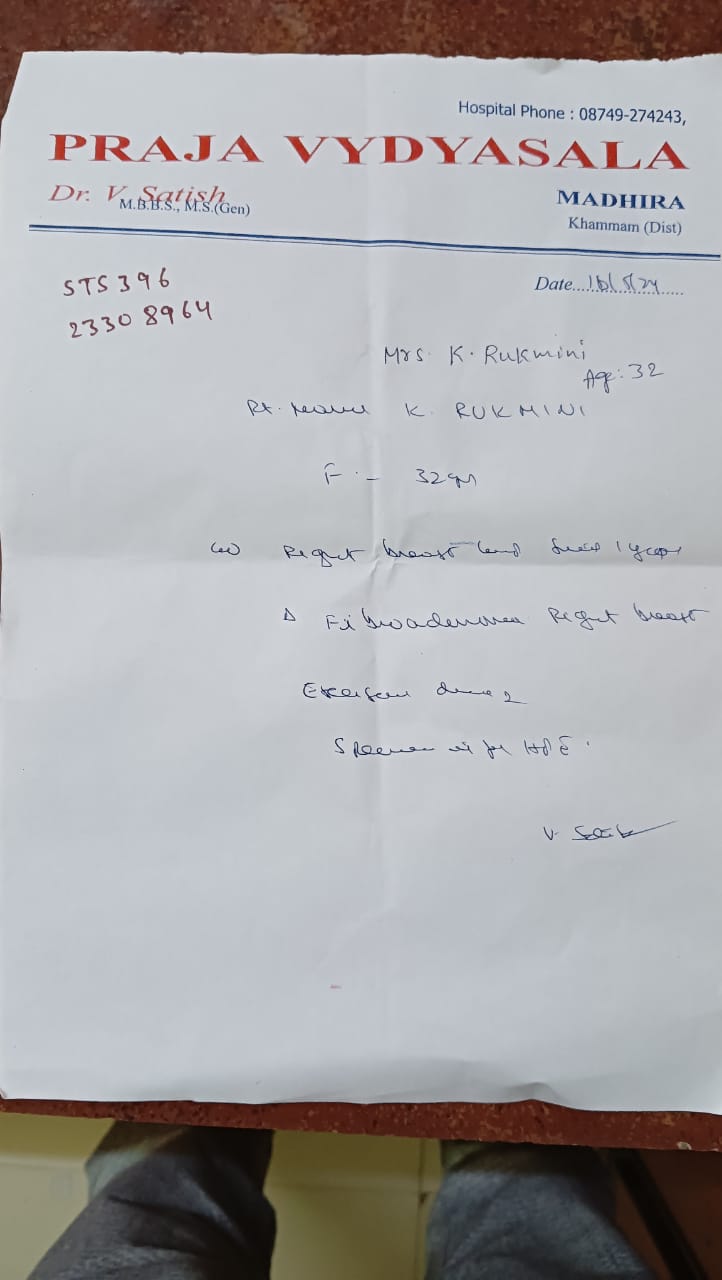 Hospital Phone : 08749-274243,
PRAJA VYDYASALA
Dr. V. Satish
M.B.B.S., M.S.(Gen)
MADHIRA
Khammam (Dist)
STS 396
23308964
Date...
Mrs. K. Rukmini
Age: 32
Pt. K. RUKMINI
F - 32
Right breast 1 year
Δ Fibroadenoma Right breast
Excision done
for HPE.
V. Satish